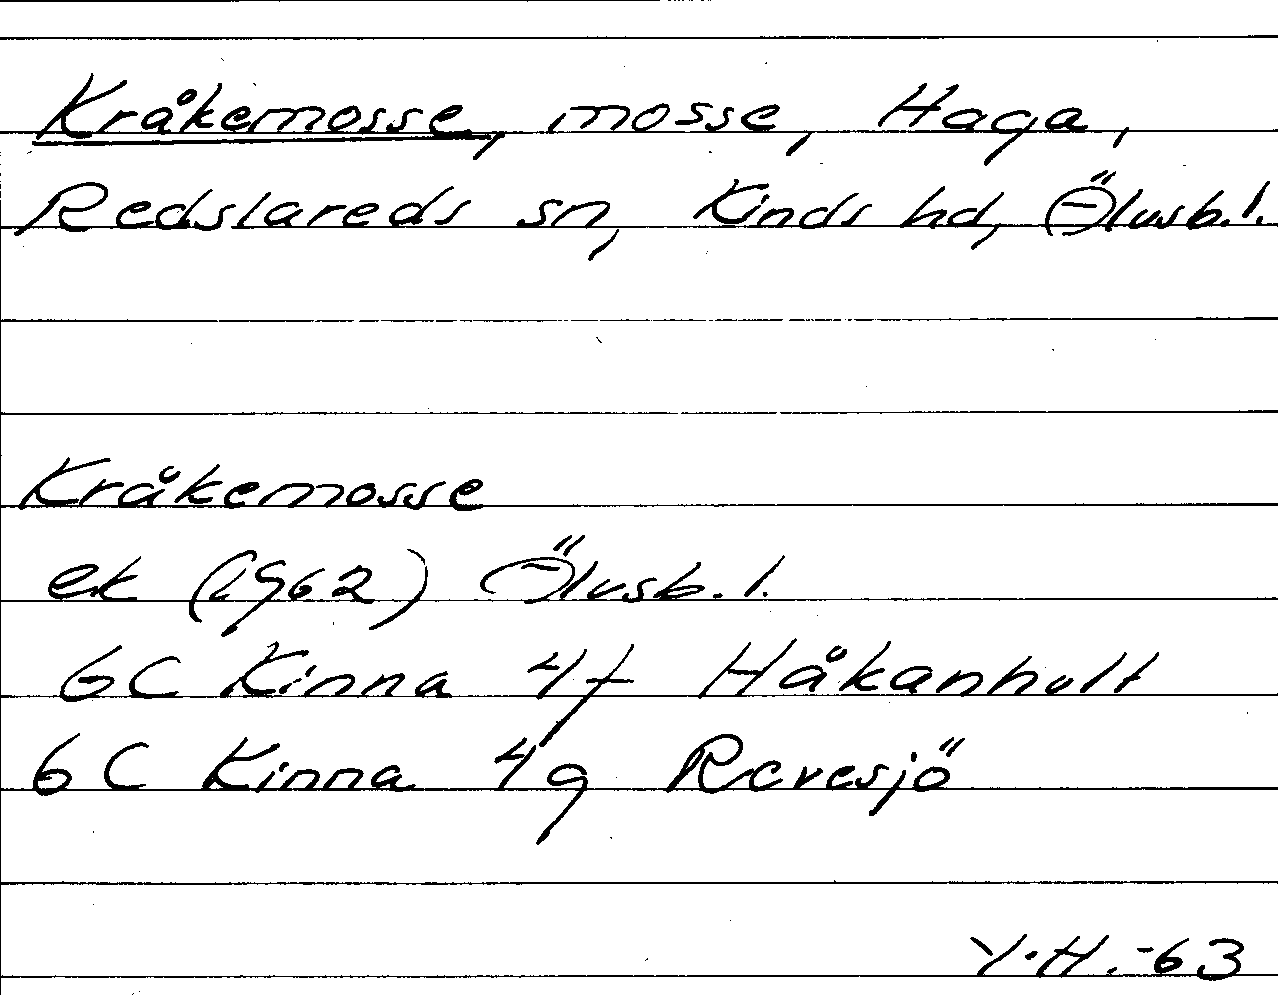 Kråkemosse, mosse, Haga,
Redslareds sn, Kinds hd, Älvsb. l.
Kråkemosse
ek (1962) Älvsb. l.
6C Kinna 4f Håkanhult
6C Kinna 4g Revesjö
Y.H. -63